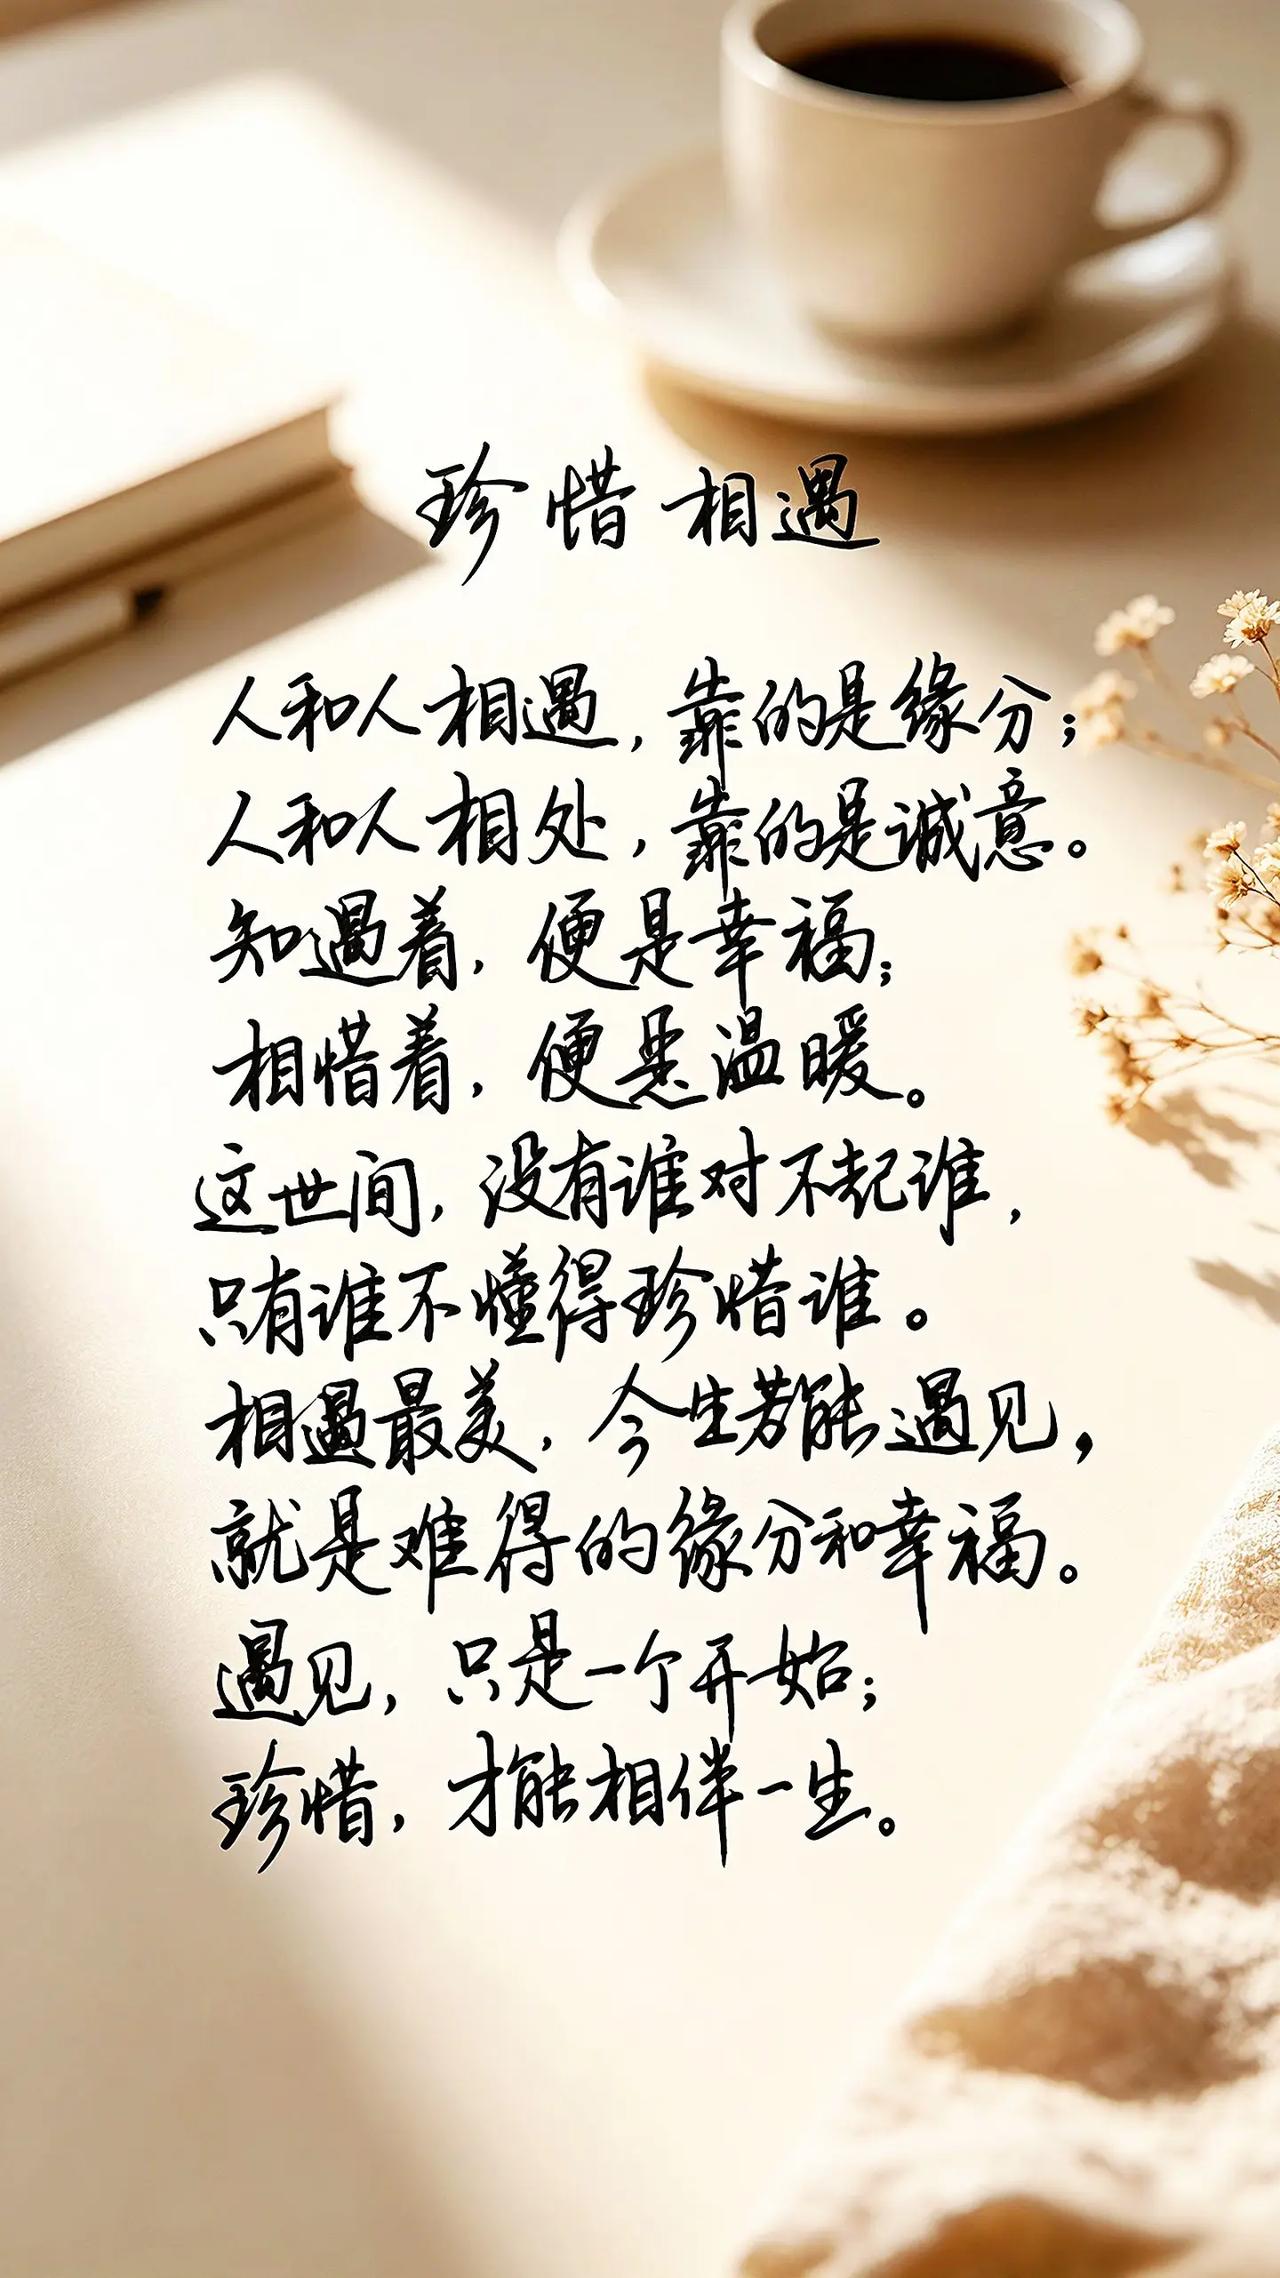 珍惜相遇
人和人相遇，靠的是缘分；
人和人相处，靠的是诚意。
知遇着，便是幸福；
相惜着，便是温暖。
这世间，没有谁对不起谁，
只有谁不懂得珍惜谁。
相遇最美，今生若能遇见，
就是难得的缘分和幸福。
遇见，只是一个开始；
珍惜，才能相伴一生。